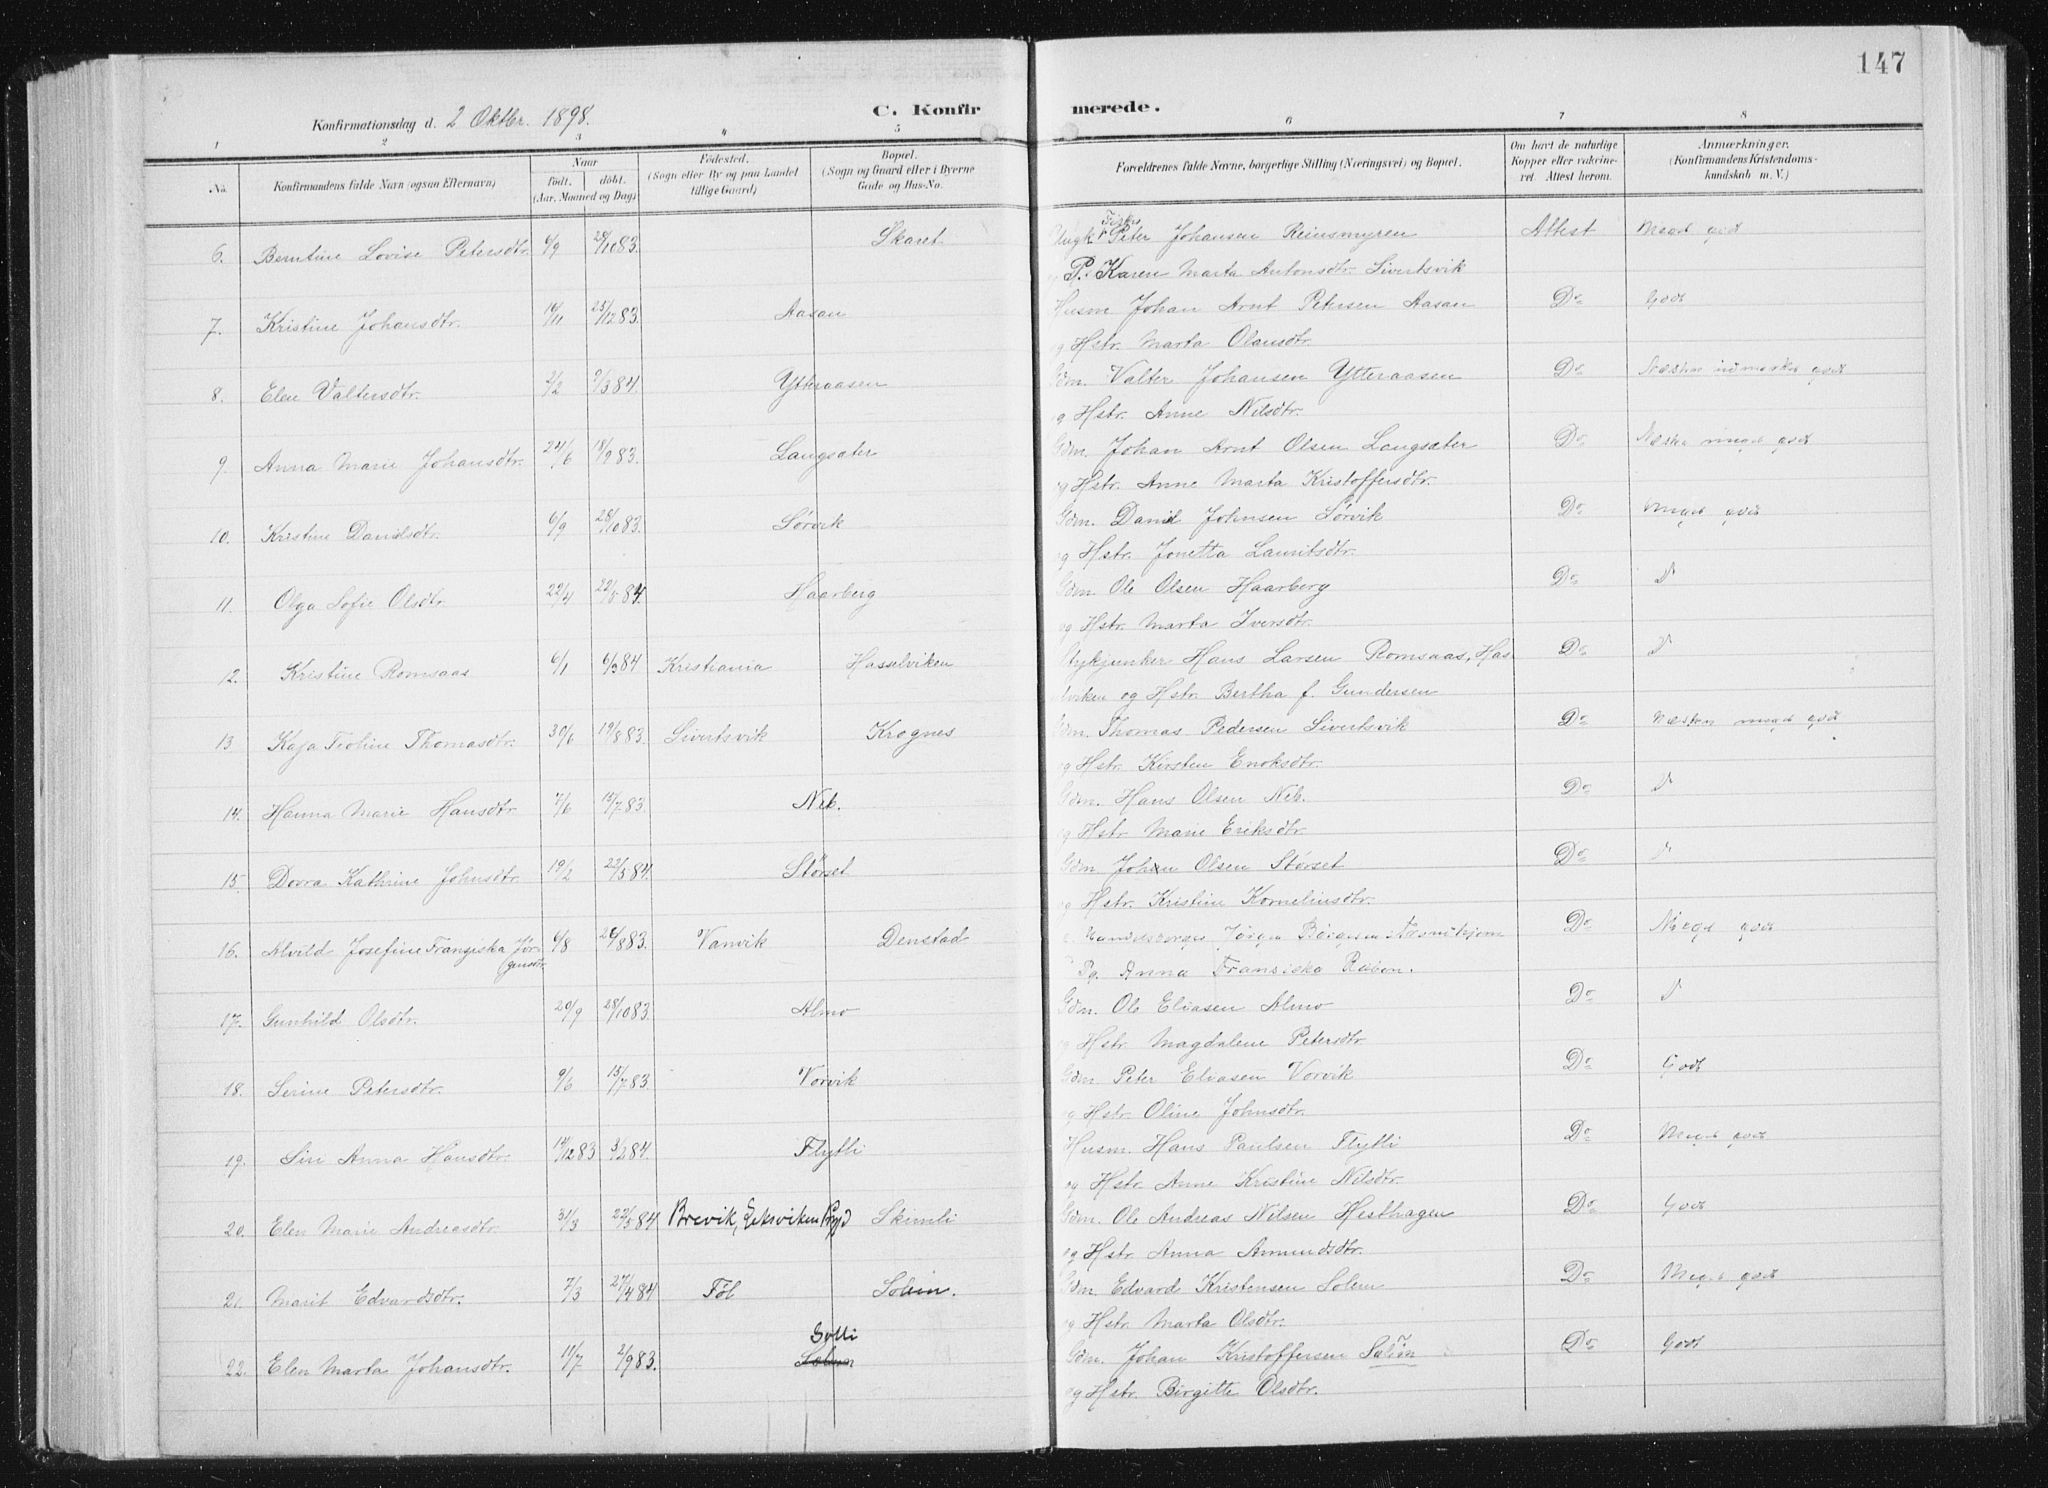 147
C. Konfirmerede.
Konfirmationsdag d. 2 Oktbr. 1898.
1 2 3 4 5 6 7 8
No. Konfirmandens fulde Navn (ogsaa Efternavn) Naar født. døbt. (Aar, Maaned og Dag) Fødested. (Sogn eller By og paa Landet tillige Gaard) Bopæl. (Sogn og Gaard eller i Byerne Gade og Hus-No. Forældrenes fulde Navne, borgerlige Stilling (Næringsvei) og Bopæl. Om havt de naturlige Kopper eller vakcineret. Attest herom. Anmærkninger. (Konfirmandens Kristendomskundskab m. V.)
6. Berntine Lovise Petersdtr. 6/9 28/10 83. Skaret Ungk. Fisker Peter Johansen Reinsmyren Attest Meget godt
P. Karen Marta Antonsdtr. Sivertsvik
7. Kristine Johansdtr. 16/11 25/12 83. Aasan Husm Johan Arnt Petersen Aasan Do Godt
og Hstr. Marta Olausdtr.
8. Elen Valtersdtr. 2/2 9/3 84. Ytteraasen Gdm. Valter Johansen Ytteraasen Do Næsten udmærket godt
og Hstr. Anne Nilsdtr.
9. Anna Marie Johansdtr. 24/6 18/9 83. Langsæter Gdm. Johan Arnt Olsen Langsæter Do Næsten meget godt
og Hstr. Anne Marta Kristoffersdtr.
10. Kristine Danielsdtr. 6/9 28/10 83. Sørvik Gdm. Daniel Johnsen Sørvik Do Meget godt
og Hstr. Jonetta Lauritsdtr.
11. Olga Sofie Olsdtr. 22/4 22/5 84. Haarberg Gdm. Ole Olsen Haarberg Do D
og Hstr. Marta Iversdtr.
12. Kristine Romsaas 6/1 6/3 84 Kristiania Hasselviken Hans Larsen Romsaas, Has Do D
lviken og Hstr. Bertha f. Gundersen
13 Kaja Teoline Thomasdtr. 30/6 19/8 83. Sivertsvik Krognes Gdm. Thomas Pedersen Sivertsvik Do Næsten meget godt
og Hstr. Kirsten Enoksdtr.
14. Hanna Marie Hansdtr 7/6 15/7 83. Neb. Gdm. Hans Olsen Neb. Do D
og Hstr. Marie Eriksdtr.
15 Dorra Kathrine Johnsdtr 19/2 22/5 84. Størset Gdm. John Olsen Størset Do D
og Hstr. Kristine Korneliusdtr.
16. Alvild Josefine Franziska Jørgensdtr. 6/8 26/8 83. Vanvik Denstad Jørgen Børgesen Do Meget godt
Pg. Anna Fransiska
17. Gunhild Olsdtr. 20/9 28/10 83. Almo Gdm. Ole Eliasen Almo Do D
og Hstr. Magdalene Petersdtr.
18. Serine Petersdtr. 9/6 15/7 83. Vorvik Gdm. Peter Eliasen Vorvik Do Godt
og Hstr. Oline Johnsdtr.
19. Siri Anna Hansdtr. 14/12 83 3/2 84. Flytli Husm. Hans Paulsen Flytli Do Meget godt
og Hstr. Anne Kristine Nilsdtr.
20. Elen Marie Andreasdtr. 31/3 22/5 84 Brevik, Leksviken Prgd Skimli Gdm. Ole Andreas Nilsen Hesthagen Do Godt
og Hstr. Anna Amundsdtr.
21. Marit Edvardsdtr. 7/3 27/4 84 Føl Solem. Gdm. Edvard Kristensen Solem Do Meget godt
og Hstr. Marta Olsdtr.
22. Elen Marta Johansdtr. 11/7 2/9 83. Solli Solem Gdm. Johan Kristoffersen Solem Do Godt
og Hstr. Birgitte Olsdtr.